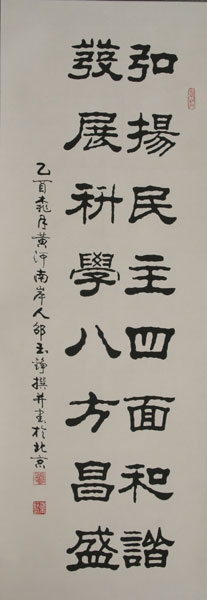 弘揚民主四面和諧
發展科學八方昌盛
乙酉桃月黃河南岸人邵玉錚撰并書於北京